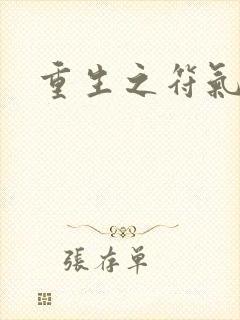 重生之符氣
張存单